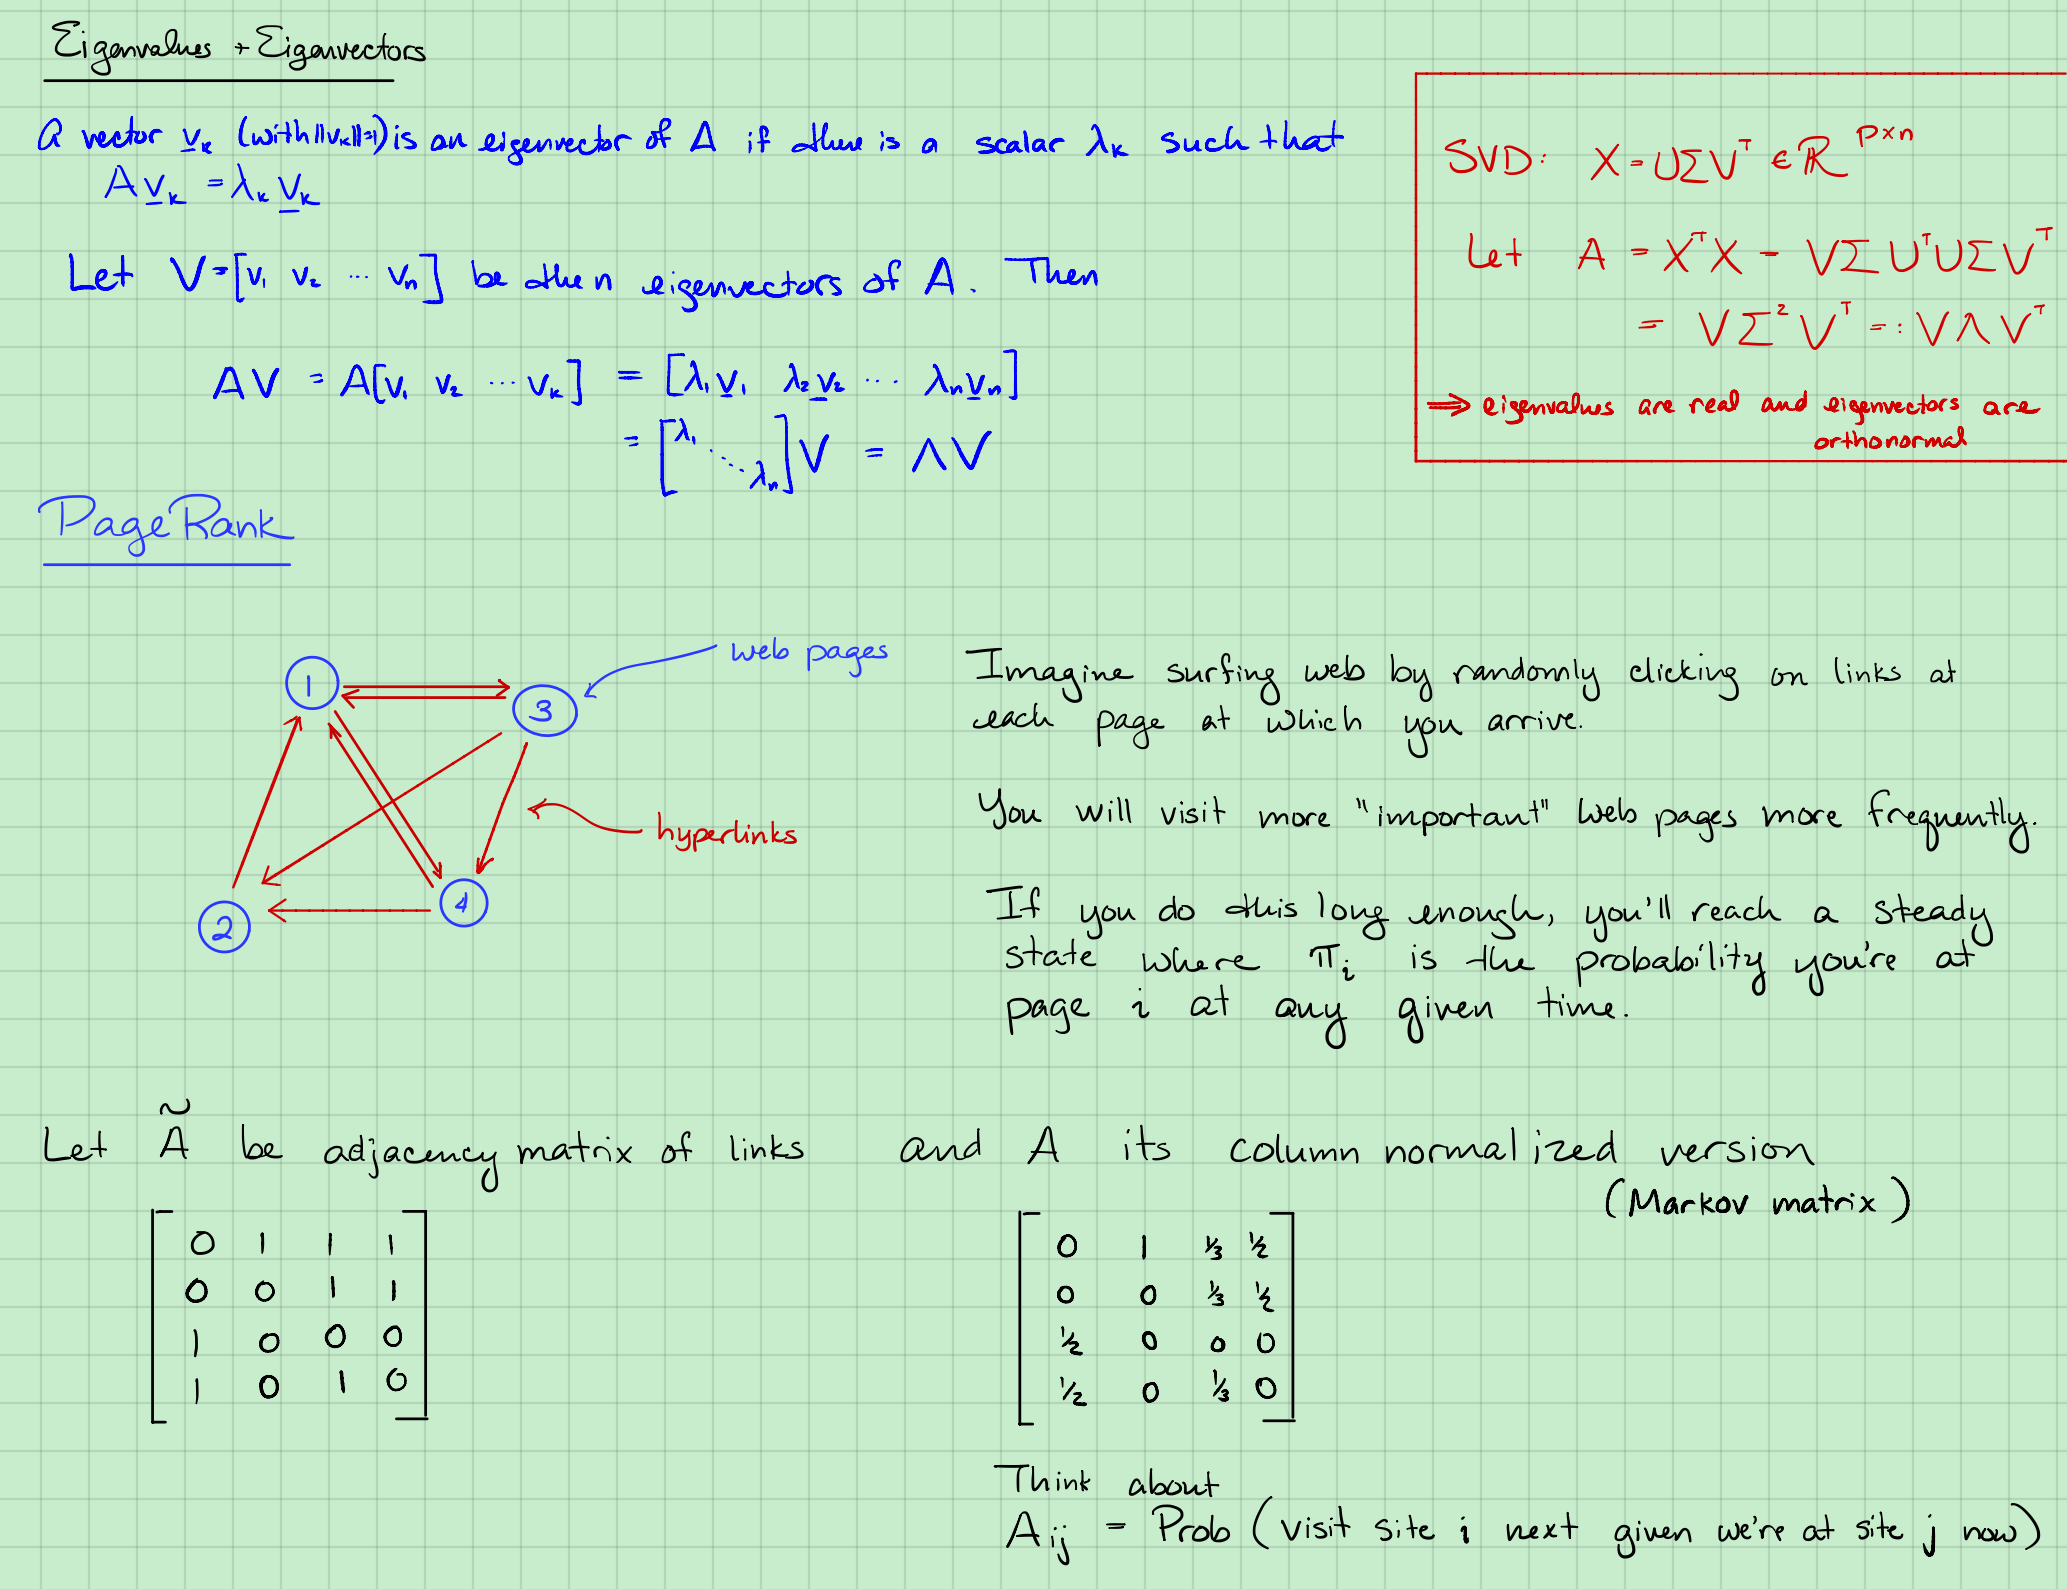 Eigenvalues + Eigenvectors
A vector v_k (with ||v_k||=1) is an eigenvector of A if there is a scalar λ_k such that
A v_k = λ_k v_k
Let V = [v_1 v_2 ... v_n] be the n eigenvectors of A. Then
AV = A[v_1 v_2 ... v_k] = [λ_1 v_1 λ_2 v_2 ... λ_n v_n]
= [λ_1 ⋱ λ_n] V = ΛV
SVD: X = UΣV^T ∈ ℝ^{p×n}
Let A = X^T X = VΣU^T UΣV^T
= VΣ^2 V^T =: VΛV^T
⇒ eigenvalues are real and eigenvectors are
orthonormal
PageRank
1
3
2
4
web pages
hyperlinks
Imagine surfing web by randomly clicking on links at
each page at which you arrive.
You will visit more "important" web pages more frequently.
If you do this long enough, you'll reach a steady
state where π_i is the probability you're at
page i at any given time.
Let Ã be adjacency matrix of links and A its column normalized version
(Markov matrix)
0 1 1 1
0 0 1 1
1 0 0 0
1 0 1 0
0 1 1/3 1/2
0 0 1/3 1/2
1/2 0 0 0
1/2 0 1/3 0
Think about
A_ij = Prob (visit site i next given we're at site j now)